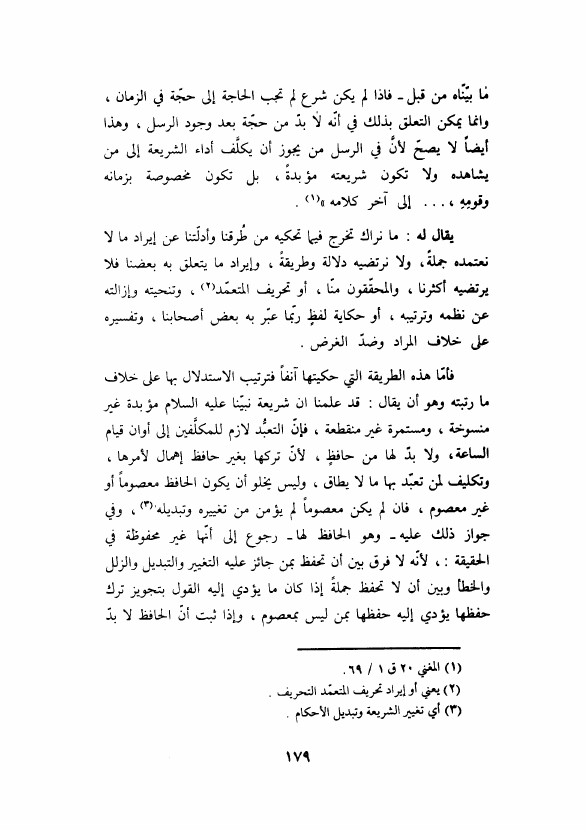 ما بيّناه من قبل ـ فاذا لم يكن شرع لم تجب الحاجة إلى حجّة في الزمان ،
وانما يمكن التعلق بذلك في أنّه لا بدّ من حجة بعد وجود الرسل ، وهذا
أيضاً لا يصحّ لأنَّ في الرسل من يجوز أن يكلَّف أداء الشريعة إلى من
يشاهده ولا تكون شريعته مؤبدةً ، بل تكون مخصوصة بزمانه
وقومِهِ ، ... إلى آخر كلامه »(١) .
يقال له : ما نراك تخرج فيما تحكيه من طُرقنا وأدلّتنا عن إيراد ما لا
نعتمده جملةً ، ولا نرتضيه دلالة وطريقةً ، وإيراد ما يتعلق به بعضنا فلا
يرتضيه أكثرنا ، والمحقّقون منّا ، أو تحريف المتعمّد(٢) ، وتنحيته وإزالته
عن نظمه وترتيبه ، أو حكاية لفظٍ ربّما عبّر به بعض أصحابنا ، وتفسيره
على خلاف المراد وضدّ الغرض .
فأمّا هذه الطريقة التي حكيتها آنفاً فترتيب الاستدلال بها على خلاف
ما رتبته وهو أن يقال : قد علمنا ان شريعة نبيّنا عليه السلام مؤبدة غير
منسوخة ، ومستمرة غير منقطعة ، فإنّ التعبُّد لازم للمكلَّفين إلى أوان قيام
الساعة، ولا بدّ لها من حافظٍ ، لأنّ تركها بغير حافظ إهمال لأمرها ،
وتكليف لمن تعبّد بها ما لا يطاق ، وليس يخلو أن يكون الحافظ معصوماً أو
غير معصوم ، فان لم يكن معصوماً لم يؤمن من تغييره وتبديله(٣) ، وفي
جواز ذلك عليه ـ وهو الحافظ لها ـ رجوع إلى أنّها غير محفوظة في
الحقيقة : ، لأنّه لا فرق بين أن تحفظ بمن جائز عليه التغيير والتبديل والزلل
والخطأ وبين أن لا تحفظ جملةً إذا كان ما يؤدي إليه القول بتجويز ترك
حفظها يؤدي إليه حفظها بمن ليس بمعصوم ، وإذا ثبت أنّ الحافظ لا بدّ
(١) المغني ٢٠ ق ١ / ٦٩ .
(٢) يعني أو إيراد تحريف المتعمّد التحريف .
(٣) أي تغيير الشريعة وتبديل الأحكام .
١٧٩